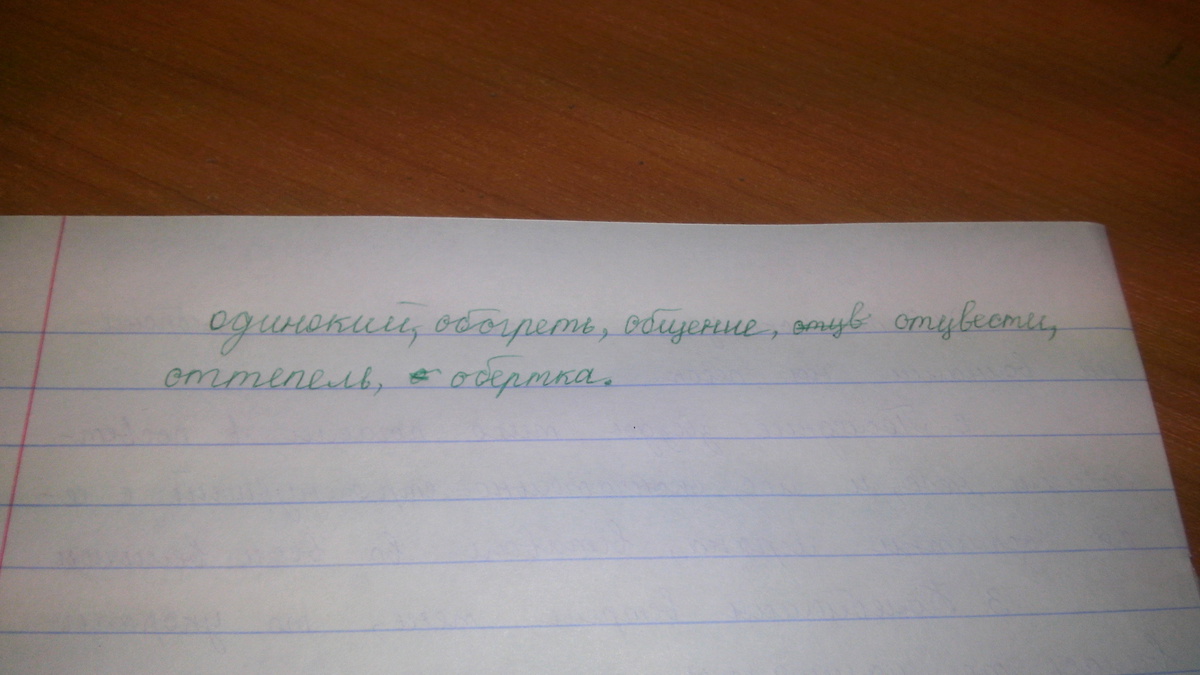 одинокий, обогреть, общение, отцвести,
оттепель, обертка.